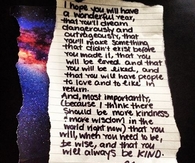 I hope you will have
a wonderful year,
that you'll dream
dangerously and
outrageously, that
you'll make something
that didn't exist before
you made it, that you
will be loved and that
you will be liked, and
that you will have people
to love and to like in
return.
And, most importantly,
(because I think there
should be more kindness
& more wisdom in the
world right now) that you
will, when you need to be,
be wise, and that you
will always be KIND.